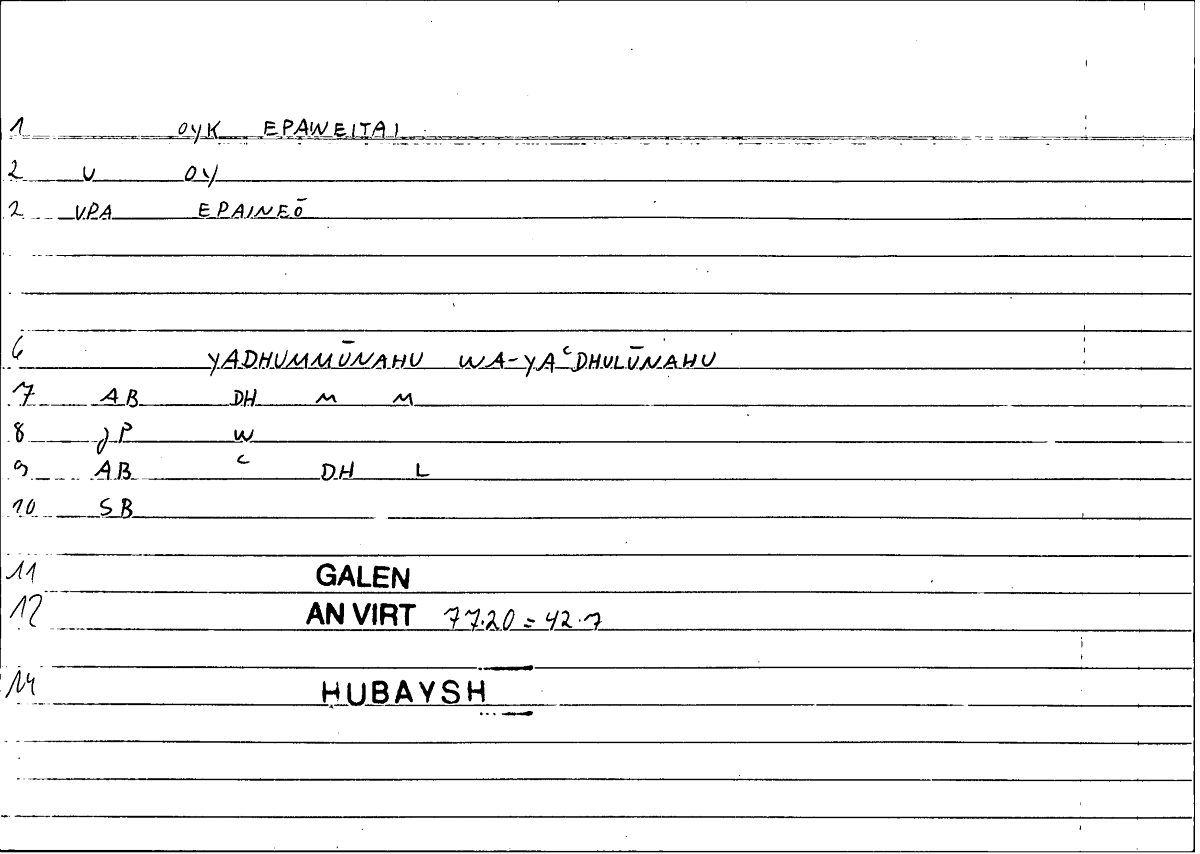 1 OYK EPAWEITAI
2 V OY
2 VPA EPAINEŌ
6 YADHUMMŪNAHU WA-YAʿDHULŪNAHU
7 AB DH M M
8 JP W
9 AB ʿ DH L
10 SB
11 GALEN
12 AN VIRT 77.20 = 42.7
14 HUBAYSH